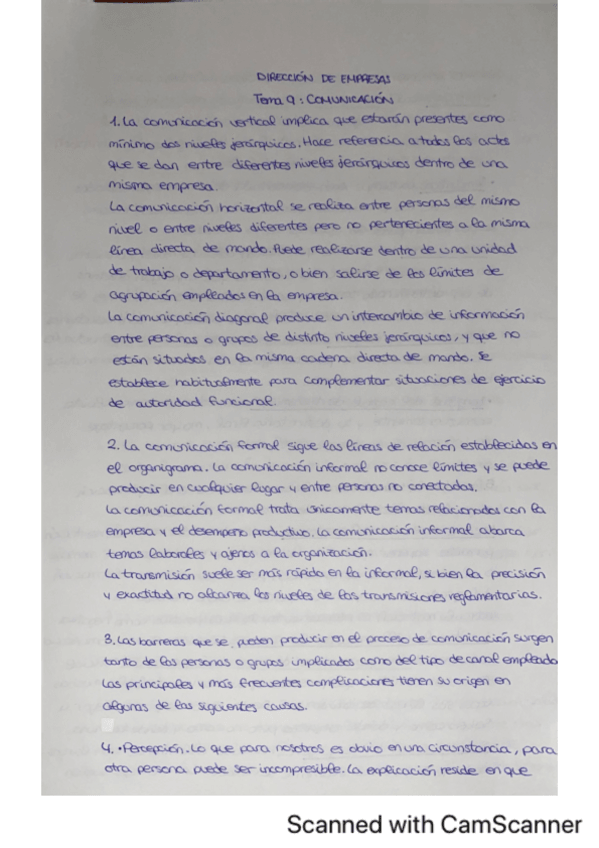 DIRECCIÓN DE EMPRESAS
Tema 9: COMUNICACIÓN
1. La comunicación vertical implica que estarán presentes como
mínimo dos niveles jerárquicos. Hace referencia a todos los actos
que se dan entre diferentes niveles jerárquicos dentro de una
misma empresa.
La comunicación horizontal se realiza entre personas del mismo
nivel o entre niveles diferentes pero no pertenecientes a la misma
línea directa de mando. Puede realizarse dentro de una unidad
de trabajo o departamento, o bien salirse de los límites de
agrupación empleados en la empresa.
La comunicación diagonal produce un intercambio de información
entre personas o grupos de distinto niveles jerárquicos, y que no
están situados en la misma cadena directa de mando. Se
establece habitualmente para complementar situaciones de ejercicio
de autoridad funcional.
2. La comunicación formal sigue las líneas de relación establecidas en
el organigrama. La comunicación informal no conoce límites y se puede
producir en cualquier lugar y entre personas no conectadas.
La comunicación formal trata únicamente temas relacionados con la
empresa y el desempeño productivo. La comunicación informal abarca
temas laborales y ajenos a la organización.
La transmisión suele ser más rápida en la informal, si bien la precisión
y exactitud no alcanza los niveles de las transmisiones reglamentarias.
3. Las barreras que se pueden producir en el proceso de comunicación surgen
tanto de las personas o grupos implicados como del tipo de canal empleado
Las principales y más frecuentes complicaciones tienen su origen en
algunas de las siguientes causas.
4. •Percepción. Lo que para nosotros es obvio en una circunstancia, para
otra persona puede ser incompresible. La explicación reside en que
Scanned with CamScanner